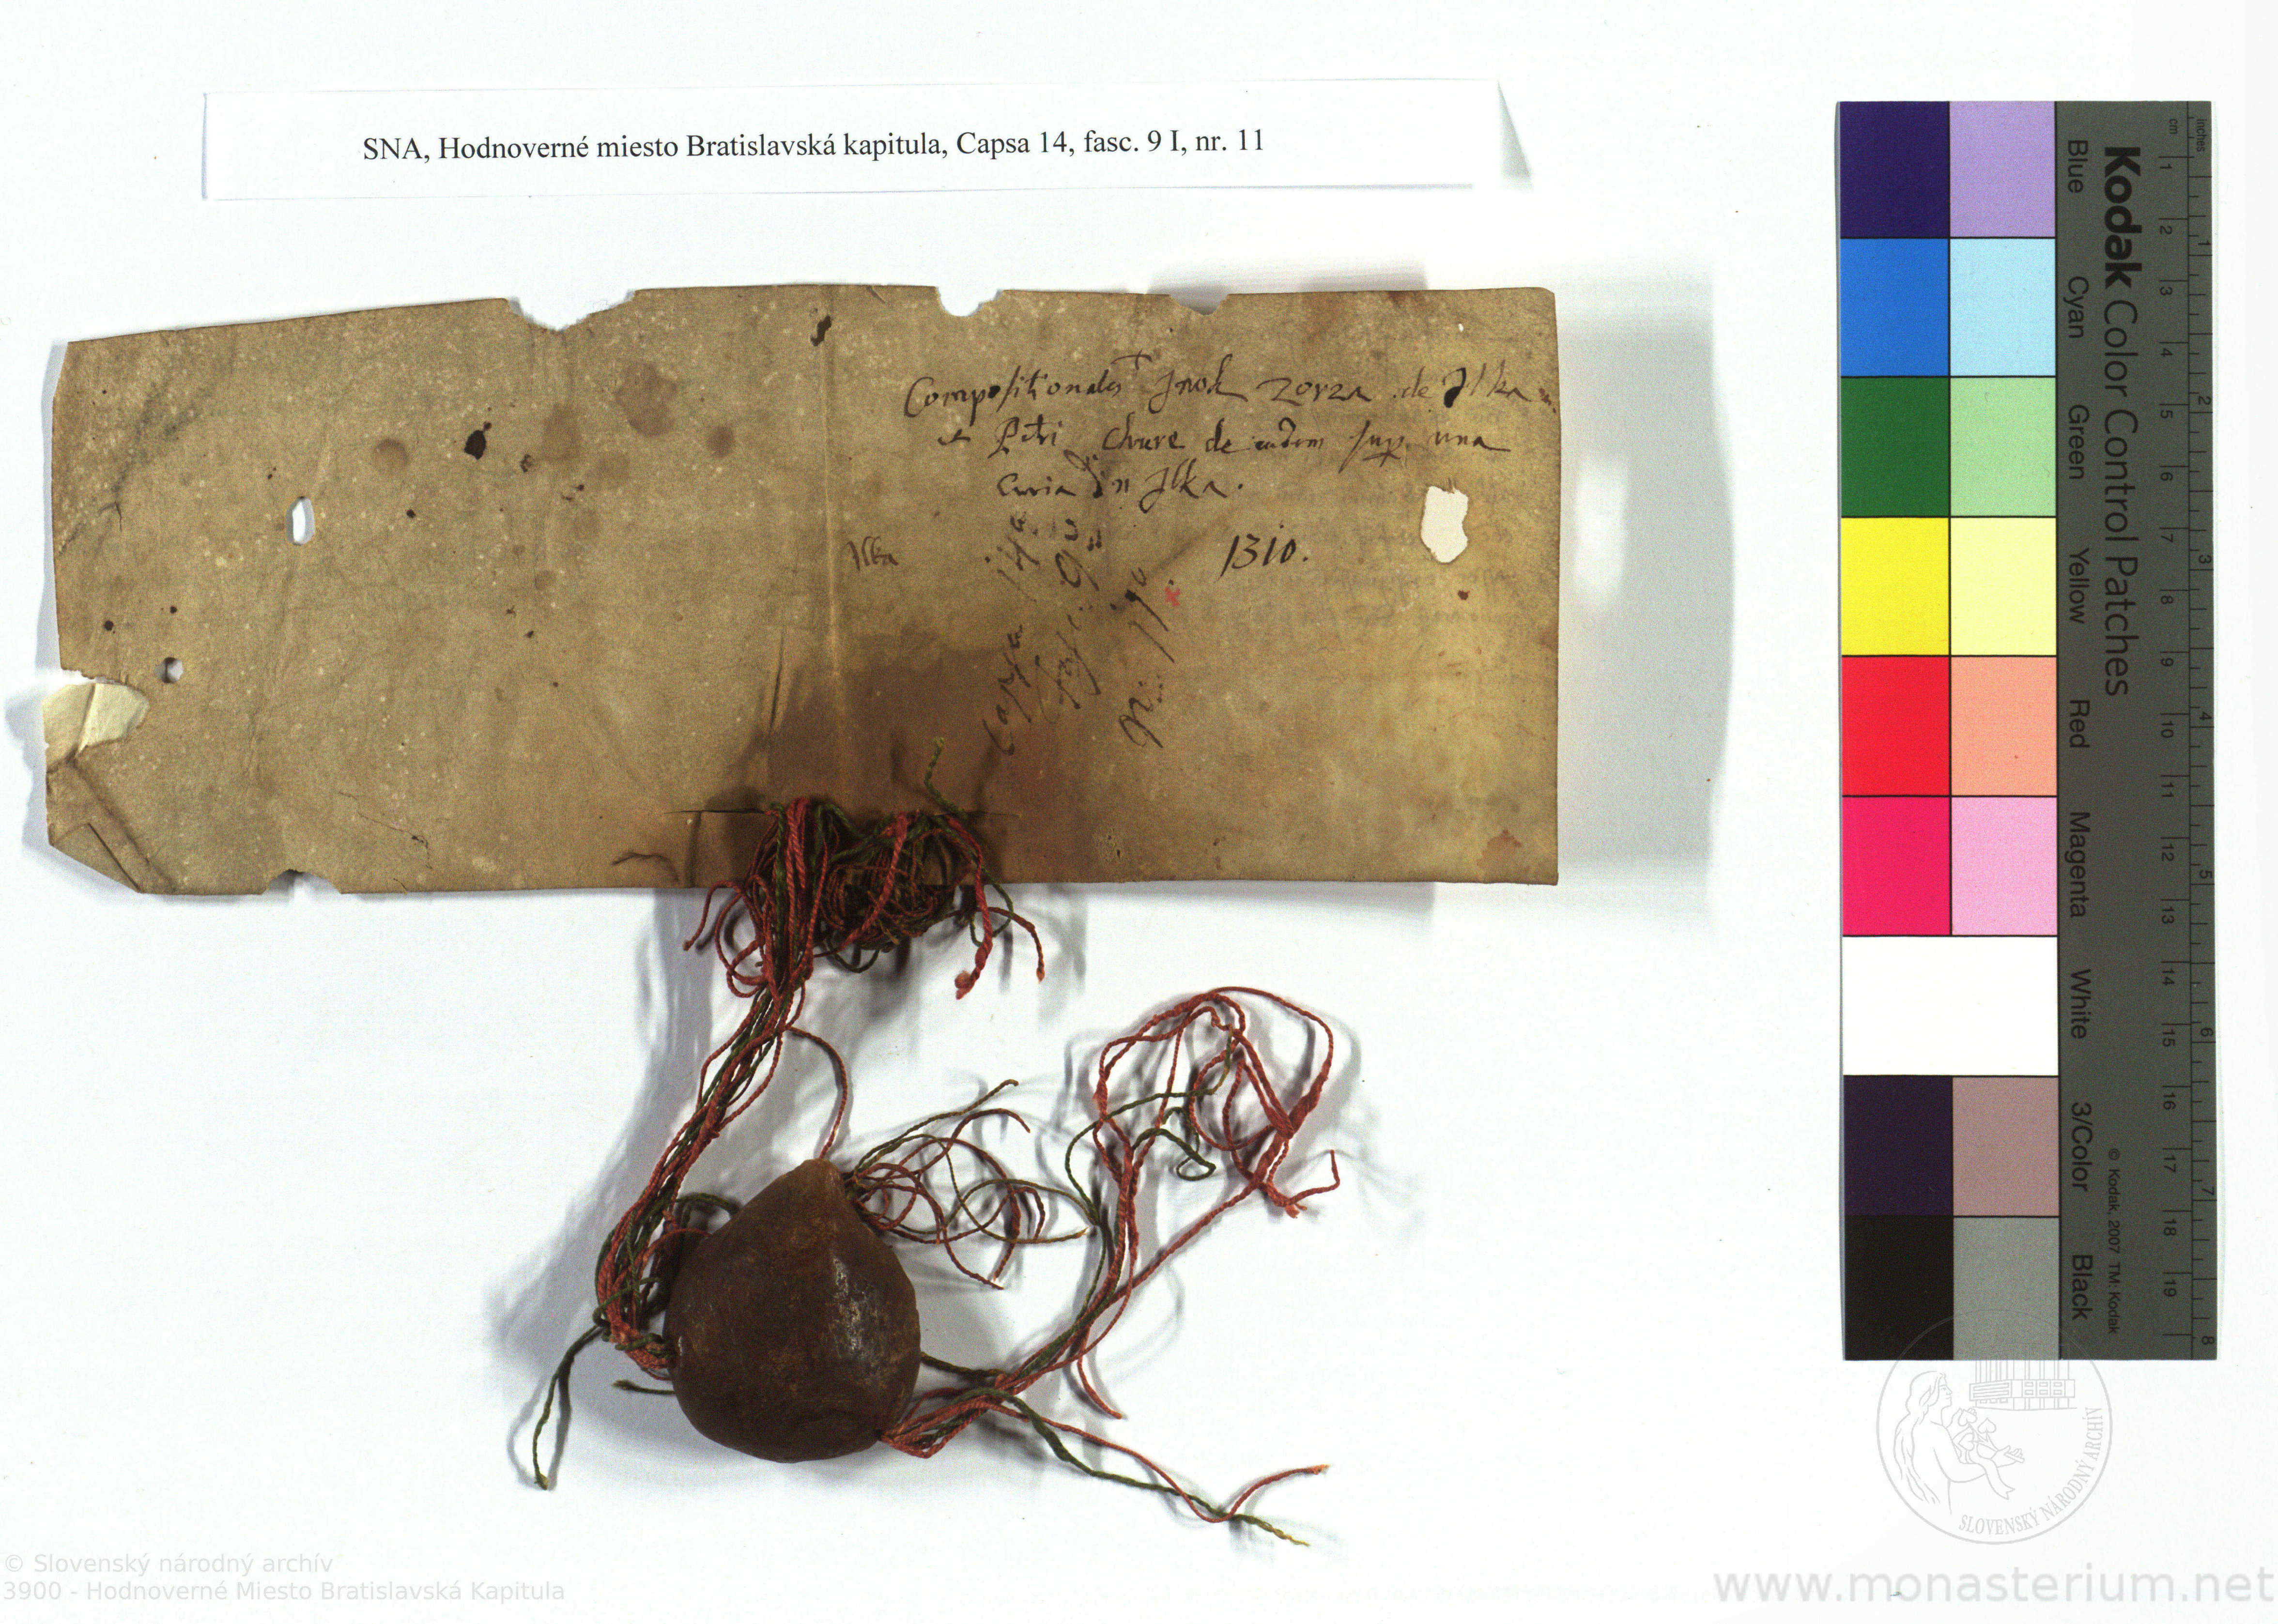 SNA, Hodnoverné miesto Bratislavská kapitula, Capsa 14, fasc. 9 I, nr. 11
Compositionales Jnok Zorza de Jlka
et Petri Chure de eadem sup. una
curia in Jlka.
Jlka
1310.
Capsa 14.
fasc. 9
N. 11.
Kodak Color Control Patches
Blue Cyan Green Yellow Red Magenta White 3/Color Black
© Kodak, 2007 TM: Kodak
cm 1 2 3 4 5 6 7 8 9 10 11 12 13 14 15 16 17 18 19
inches 1 2 3 4 5 6 7 8
SLOVENSKÝ NÁRODNÝ ARCHÍV
© Slovenský národný archív
3900 - Hodnoverné Miesto Bratislavská Kapitula
www.monasterium.net